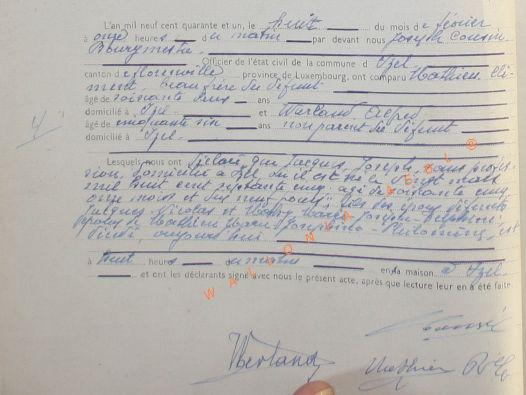 L'an mil neuf cent quarante et un, le huit du mois de février
à onze heures du matin par devant nous Joseph Cousin
Bourgmestre
Officier de l'état civil de la commune d Izel
canton de Florenville province de Luxembourg, ont comparu Mathieu Clé-
ment, beau frère du défunt
âgé de soixante deux ans
domicilié à Izel et Werland, Alfred
âgé de cinquante six ans non parent du défunt
domicilié à Izel
Lesquels nous ont déclaré que Jacques, Joseph, sans profes-
sion, domicilié à Izel où il est né le vingt mars
mil huit cent septante cinq, âgé de soixante cinq
ans, onze mois et jours, fils des époux défunts
Jacques, Nicolas et Marie
époux de Mathieu, Marie Joséphine Philomène, est
décédé, aujourd'hui
à huit heures du matin en sa maison à Izel
et ont les déclarants signé avec nous le présent acte, après que lecture leur en a été faite
Werland
Mathieu
WALLONIA